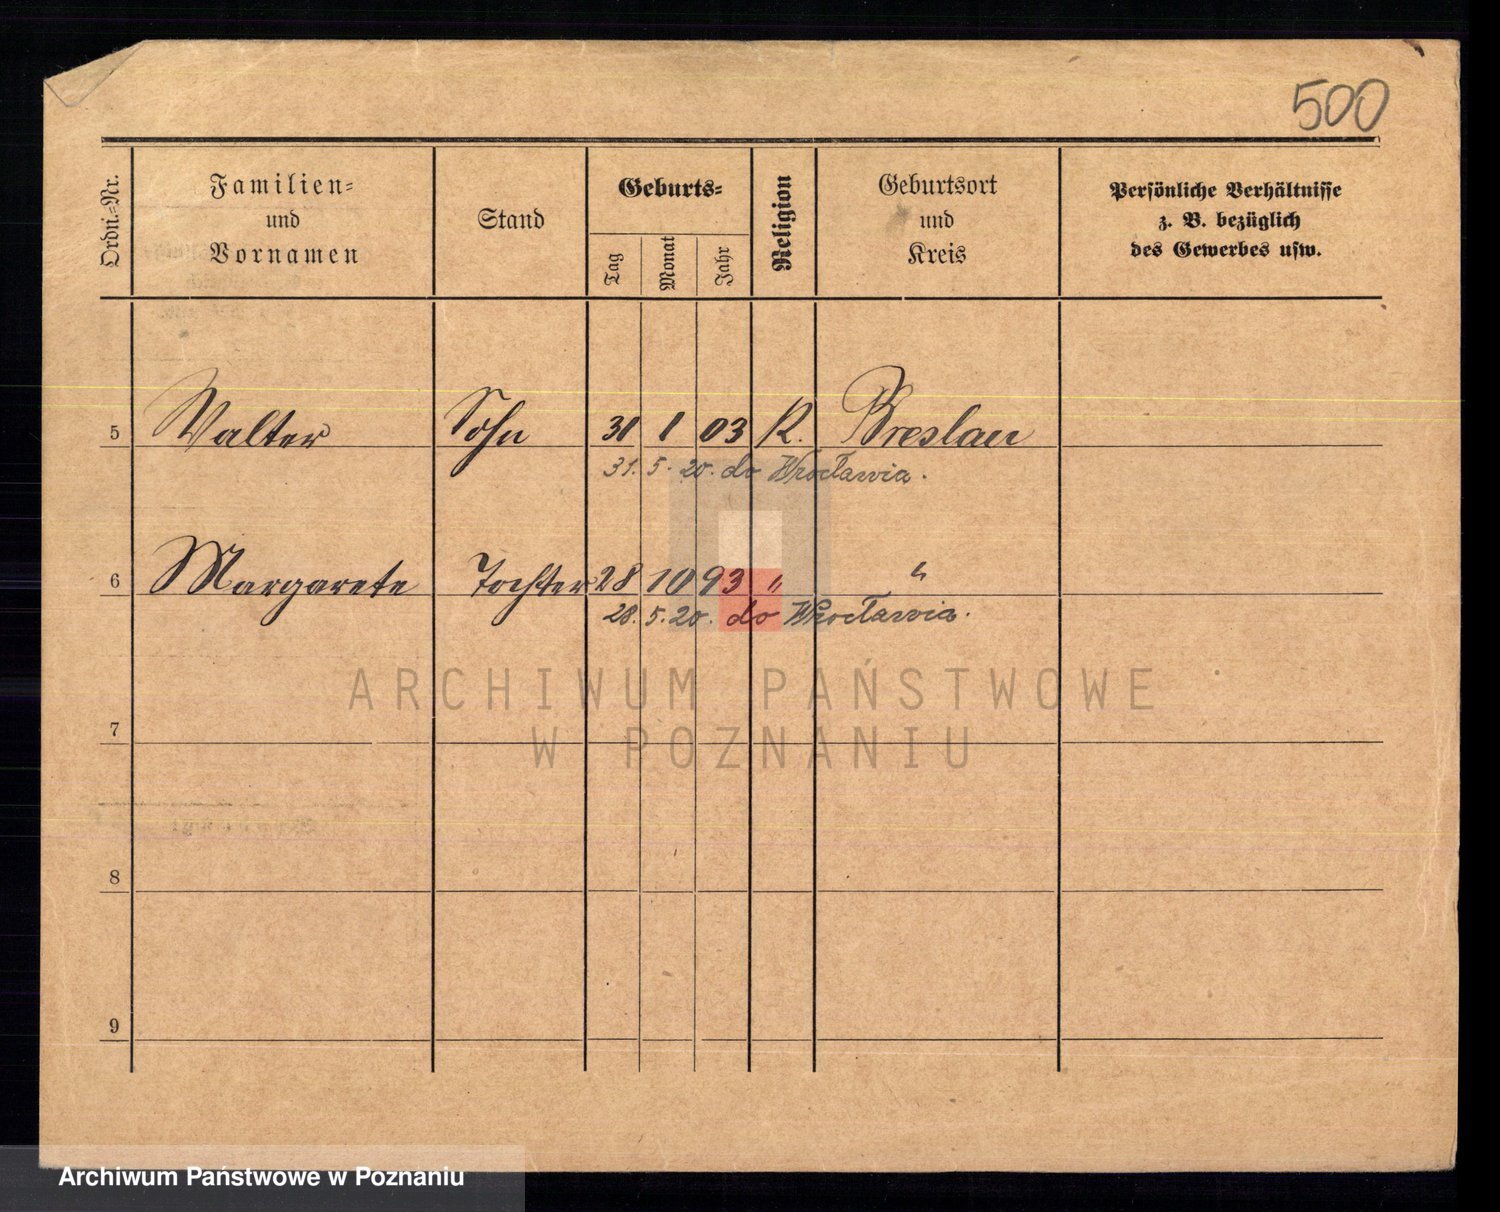 500
Ordn.=Nr.
Familien=
und
Vornamen
Stand
Geburts=
Tag
Monat
Jahr
Religion
Geburtsort
und
Kreis
Persönliche Verhältnisse
z. B. bezüglich
des Gewerbes usw.
5 Walter Sohn 31 1 03 K. Breslau
31. 5. 20. do Wrocławia.
6 Margarete Tochter 28 10 93 " "
28. 5. 20. do Wrocławia.
ARCHIWUM PAŃSTWOWE
W POZNANIU
7
8
9
Archiwum Państwowe w Poznaniu